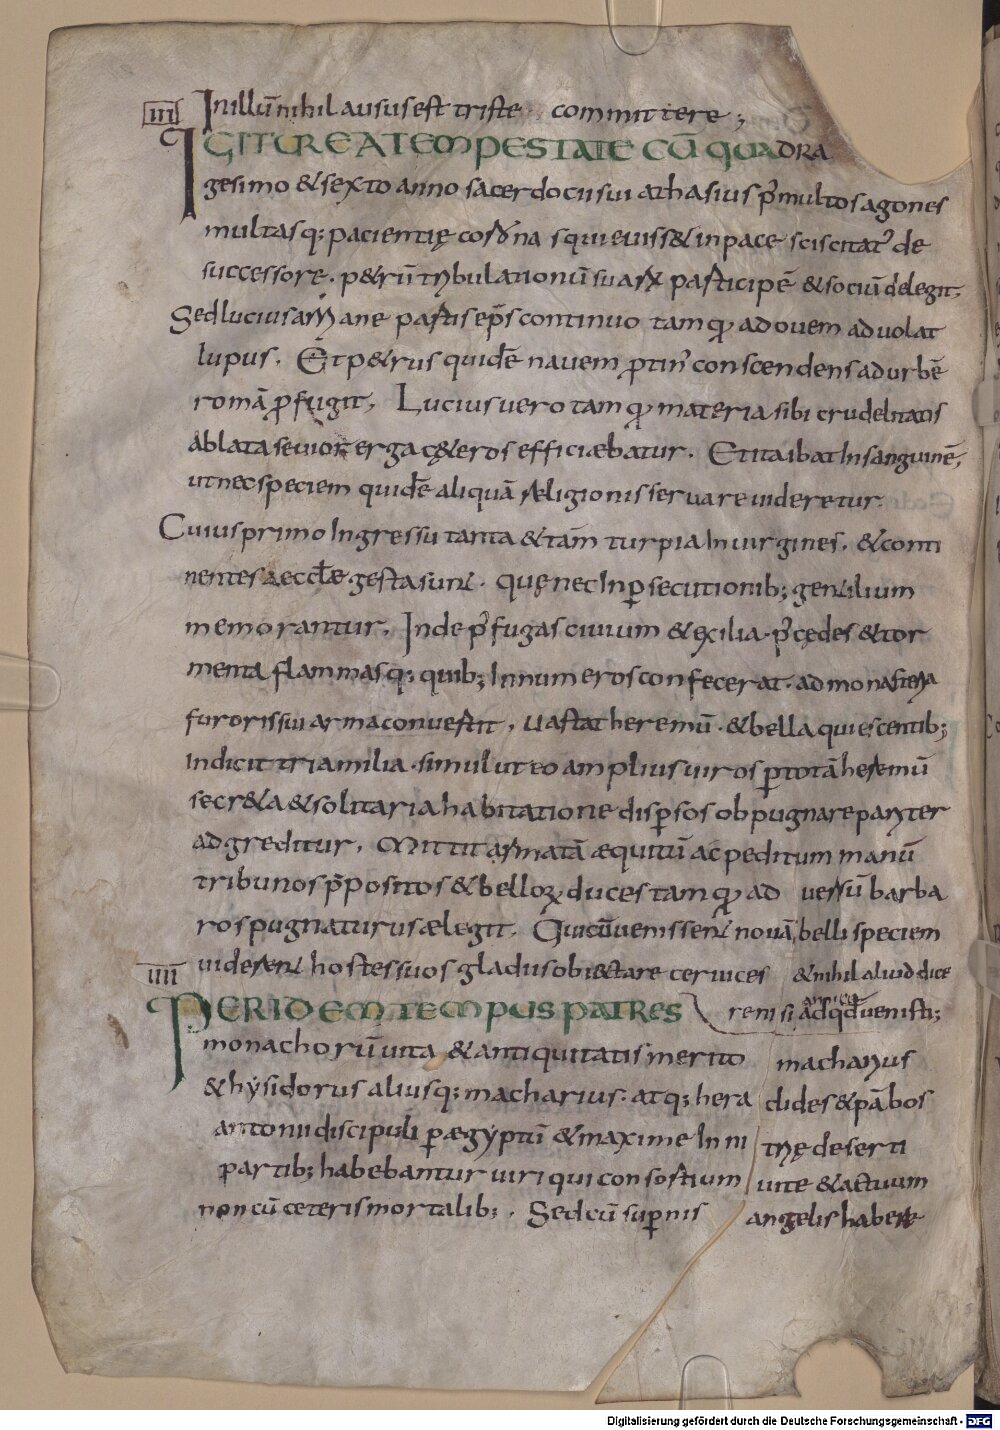 III In illū nihil aususest triste committere ;
IGITUR EA TEMPESTATE CŪ QUADRA
gesimo & sexto anno sacerdocii sui athasius p̄ multos agones
multasq; pacientię coronas quieuiss& in pace sciscitat' de
successore. p&rū tribulationū suaꝝ participē & sociū delegit.
Sed lucius arrianę partis ep̄s continuo tamqꝫ ad ouem aduolat
lupus. Et p&rus quidē nauem ꝓtin' conscendens ad urbē
romā ꝓfugit. Lucius uero tamqꝫ materia sibi crudelitatis
ablata seuior erga c&eros efficiębatur. Et ita ibat In sanguinē,
ut nec speciem quidē aliquā religionis seruare uideretur.
Cuius primo Ingressu tanta & tam turpia In uirgines. & conti
nentes aeccłae gesta sunt. quę nec In ꝑsecutionib; gentilium
memorantur. Inde p̄ fugas ciuium & exilia. p̄ cędes & tor
menta flammasq; quib; Innumeros confecerat. ad monasteria
furoris sui arma conuertit. uastat heremū. & bella quiescentib;
Indicit tria milia. simul ut eo amplius uiros ꝑ totā heremū
secr&a & solitaria habitatione disꝑsos obpugnare pariter
adgreditur. Mittit armatā æquitū ac peditum manū
tribunos p̄positos & belloꝝ duces tamqꝫ ad uersū barba
ros pugnaturus ælegit. Qui cū uenissent nouā belli speciem
uiderent hostes suos gladiis obiectare ceruices & nihil aliud dice
IIII PER IDEM TEMPUS PATRES re nisi amice ad qd̄ uenisti;
monachorū uita & antiquitatis merito macharius
& hysidorus aliusq; macharius. atq; hera clides & pābos
antonii discipuli ꝑ ægyptū & maxime In ni trię deserti
partib; habebantur uiri qui consortium uite & actuum
non cū ceteris mortalib;. Sed cū suꝑnis angelis habere
Digitalisierung gefördert durch die Deutsche Forschungsgemeinschaft - DFG